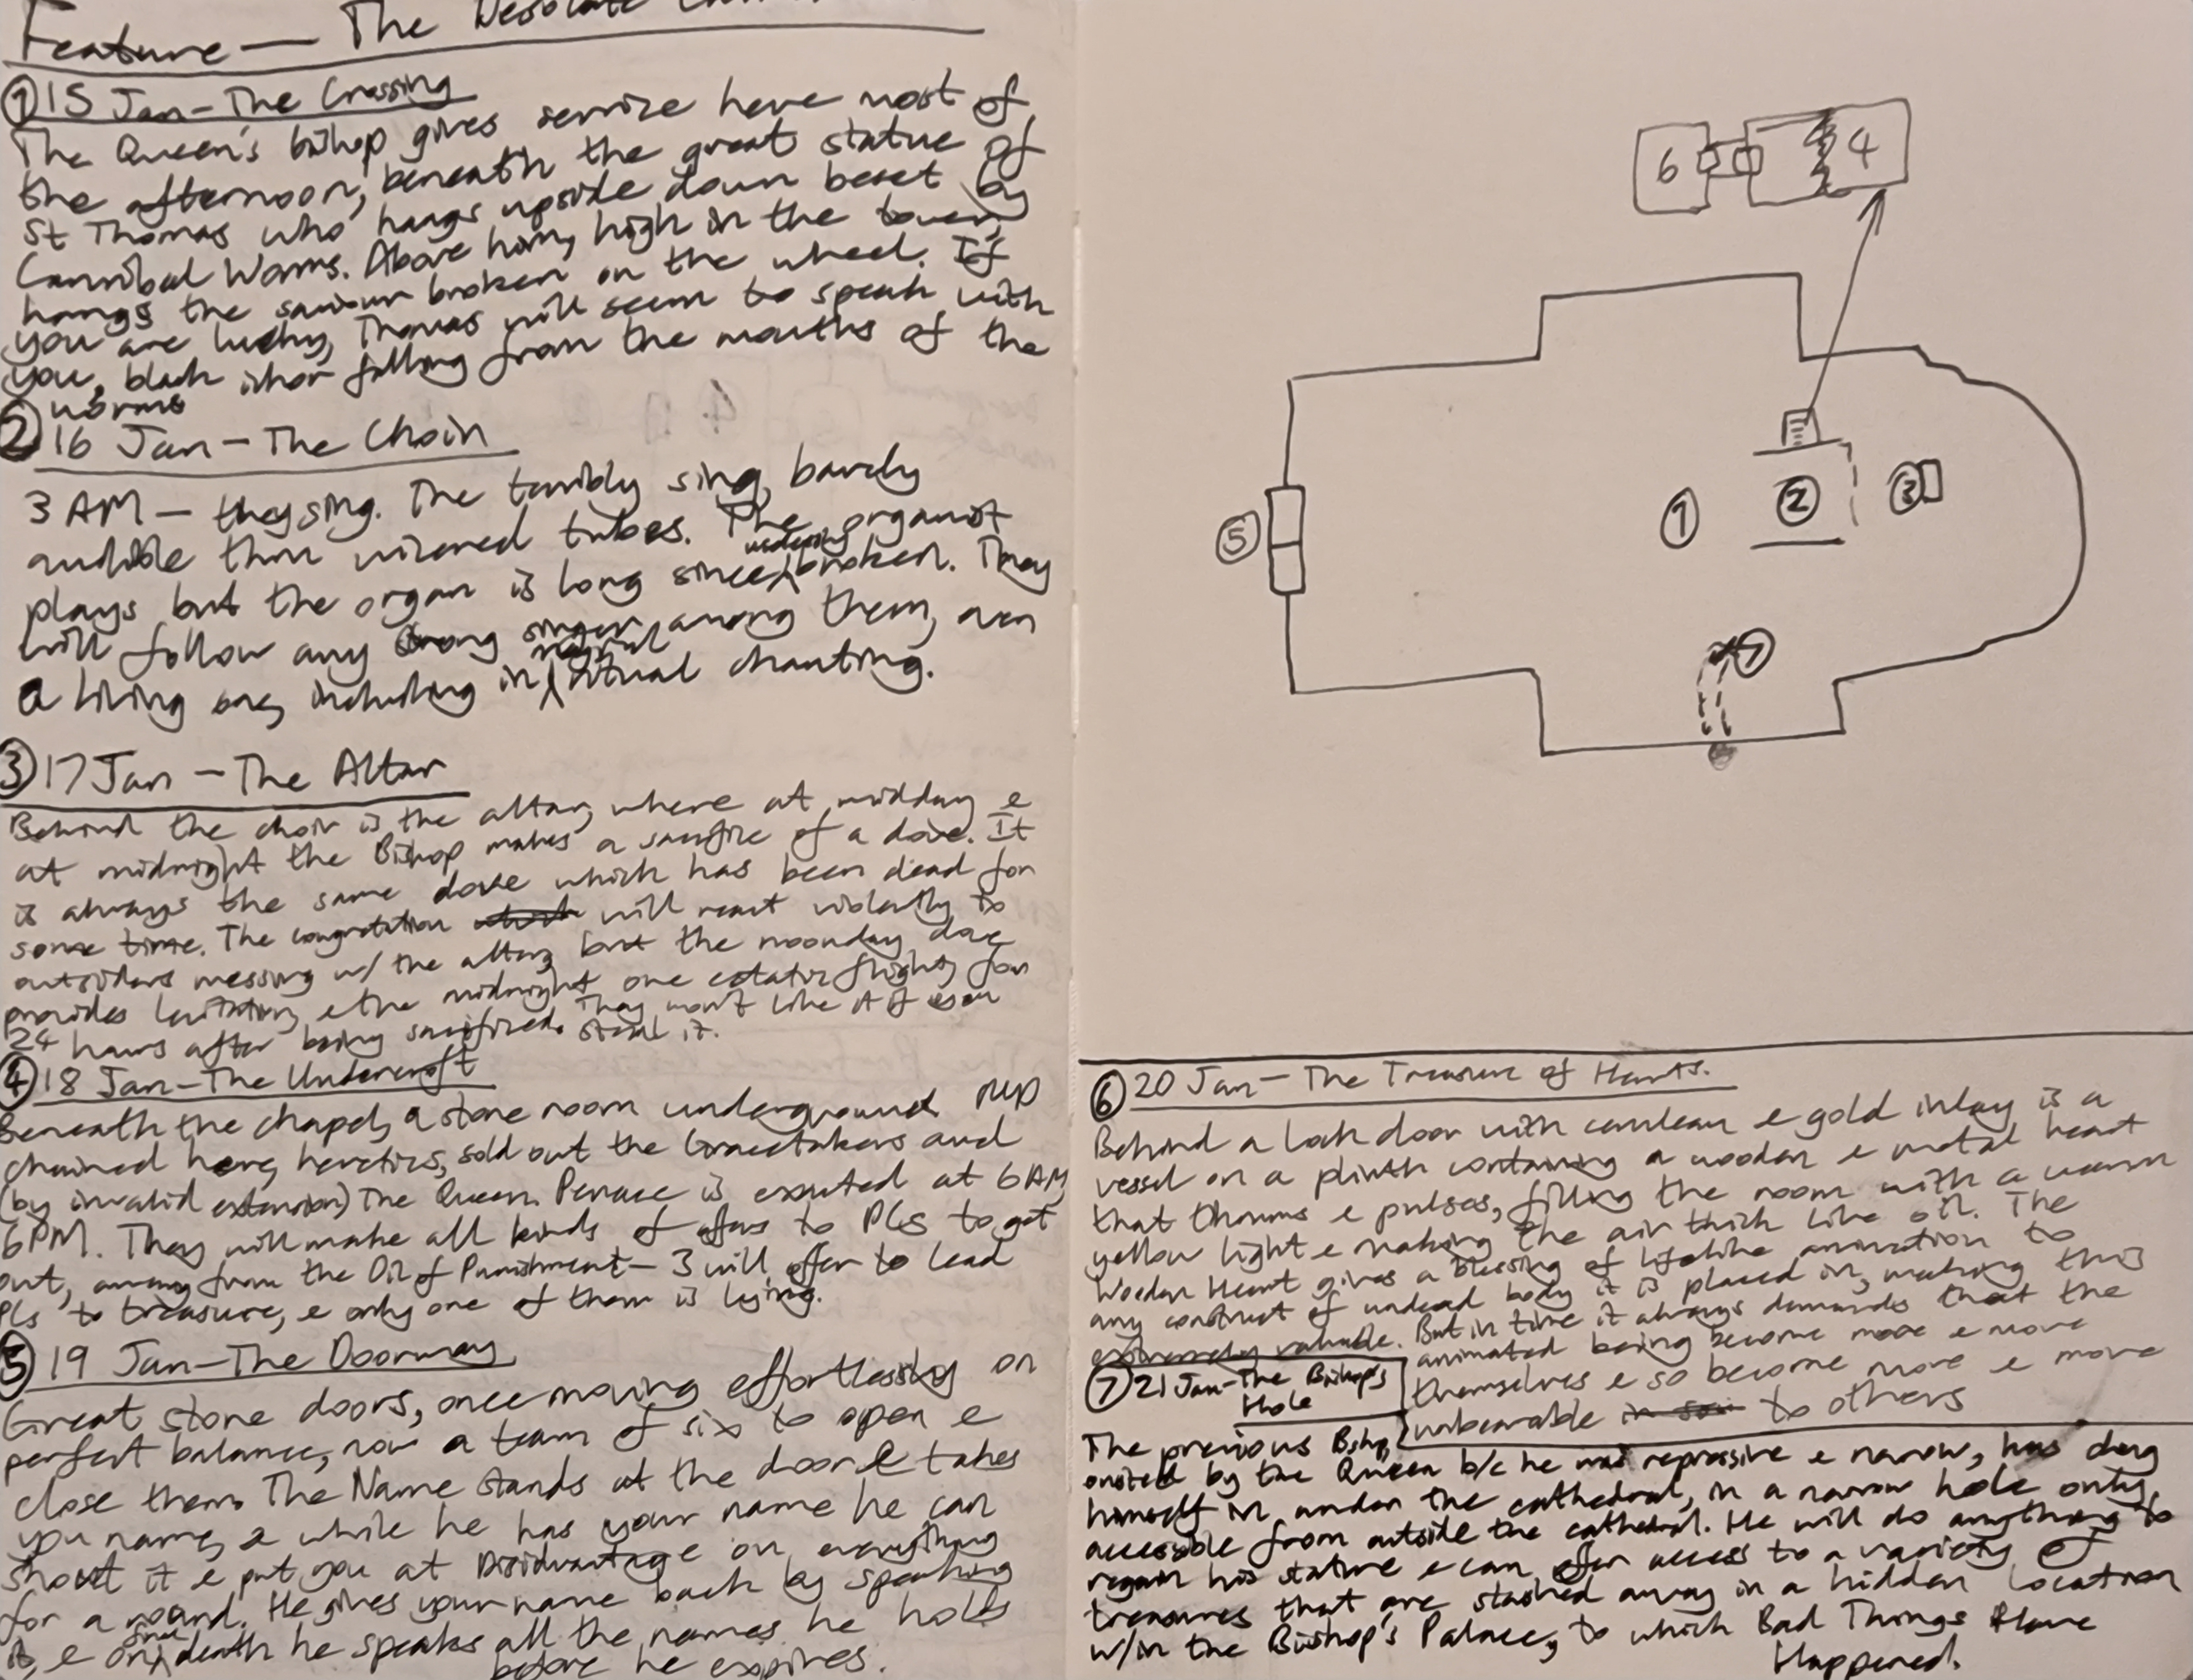 Feature — The Desolate
① 15 Jan - The Crossing
The Queen's bishop gives service here most of
the afternoon, beneath the great statue of
St Thomas who hangs upside down beset by
Cannibal Worms. Above him, high in the tower,
hangs the saviour broken on the wheel. If
you are lucky, Thomas will seem to speak with
you, black ichor falling from the mouths of the
worms
② 16 Jan - The Choir
3 AM - they sing. The terribly sing, barely
audible thru wizened tubes. The organist
plays but the organ is long since broken. They
will follow any strong singer among them, even
a living one, including in ritual chanting.
③ 17 Jan - The Altar
Behind the choir is the altar, where at midday e
at midnight the Bishop makes a sacrifice of a dove. It
is always the same dove which has been dead for
some time. The congregation will react violently to
outsiders messing w/ the altar, but the noonday dove
provides levitation, e the midnight one ecstatic flight, for
24 hours after being sacrificed. They won't like it if you
steal it.
④ 18 Jan - The Undercroft
Beneath the chapel, a stone room underground. NPCs
chained here, heretics, sold out the Gracetakers and
(by invalid extension) The Queen. Penance is exacted at 6AM,
6PM. They will make all kinds of offers to PCs to get
out, away from the Oil of Punishment - 3 will offer to lead
PCs to treasure, e only one of them is lying.
⑤ 19 Jan - The Doorway
Great stone doors, once moving effortlessly on
perfect balance, now a team of six to open e
close them. The Name stands at the door e takes
you name, e while he has your name he can
shout it e put you at Disidvantage on everything
for a round. He gives your name back by speaking
it, e on death he speaks all the names he holds
before he expires.
6 4
⑤ ① ② ③
⑦
⑥ 20 Jan - The Treasure of Hearts.
Behind a lock door with cerulean e gold inlay is a
vessel on a plinth containing a wooden e metal heart
that thrums e pulses, filling the room with a warm
yellow light e making the air thick like oil. The
Wooden Heart gives a blessing of lifelike animation to
any construct of undead body it is placed in, making this
extremely valuable. But in time it always demands that the
animated being become more e more
themselves e so become more e more
unbearable to others
⑦ 21 Jan - The Bishop's
Hole
The previous Bishop,
ousted by the Queen b/c he was repressive e narrow, has dug
himself in under the cathedral, in a narrow hole only
accessible from outside the cathedral. He will do anything to
regain his stature e can offer access to a variety of
treasures that are stashed away in a hidden location
w/in the Bishop's Palace, to which Bad Things Have
Happened.